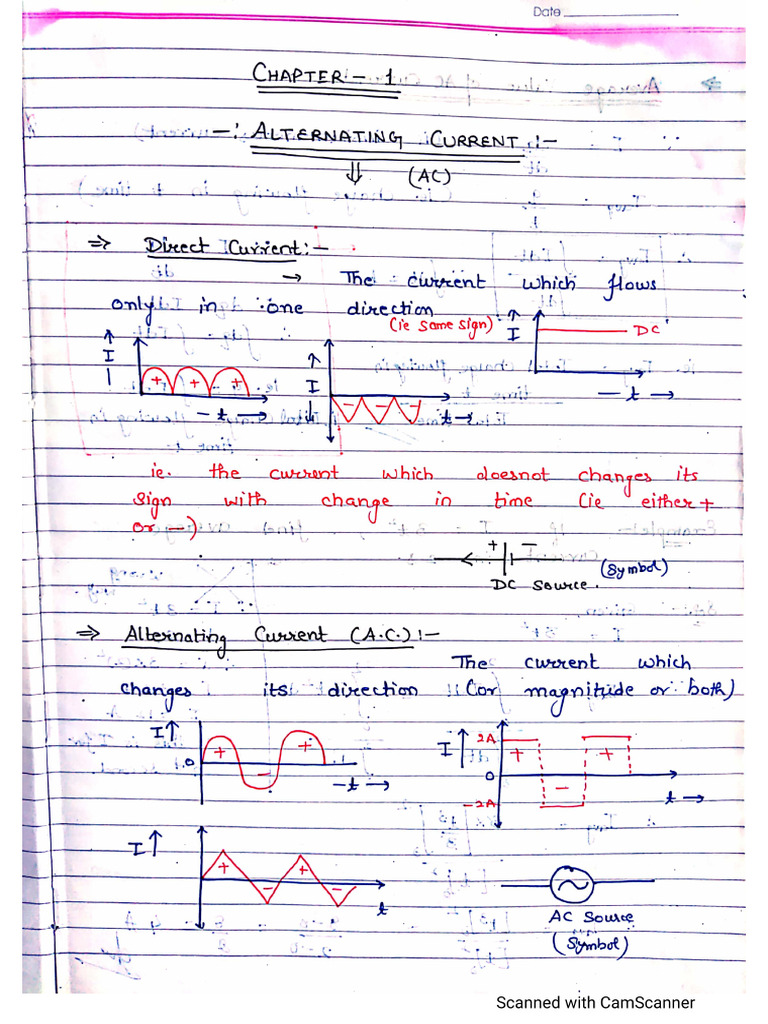 Date
CHAPTER - 1
-: ALTERNATING CURRENT :-
⇓ (AC)
⇒ Direct Current :-
→ The current which flows
only in one direction
(ie same sign)
I
DC
- t →
I
+ + +
- t →
I
- - -
t →
ie. the current which doesnot changes its
sign with change in time (ie either +
or -)
+ -
DC Source.
(Symbol)
⇒ Alternating Current (A.C.) :-
The current which
changes its direction (or magnitude or both)
I↑
0
+ - +
- t →
I↑
2A
0
-2A
+ - +
t →
I↑
+ - + -
t
AC Source
(Symbol)
Scanned with CamScanner